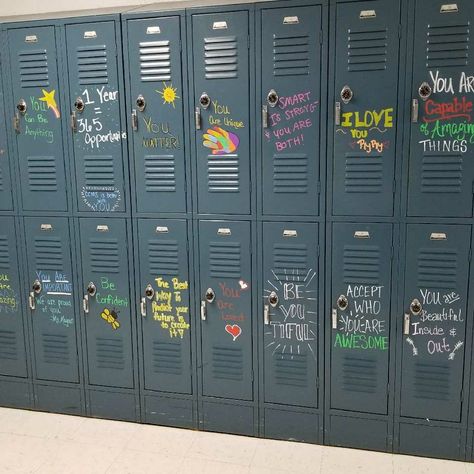 You
can be
Anything
1 Year
=
365
Opportunities
You
Matter
You
Are
Unique
SMART
is
STRONG
YOU ARE
BOTH!
I LOVE
You
You
ARE
Capable
of
Amazing
THINGS
YOU ARE
Important
We are
proud of
you
Be
Confident
The Best
Way To
Predict
your
Future
is to
create
it
You
are
loved
BE
YOU
TIFUL
ACCEPT
WHO
YOU ARE
AWESOME
You are
Beautiful
Inside
&
Out